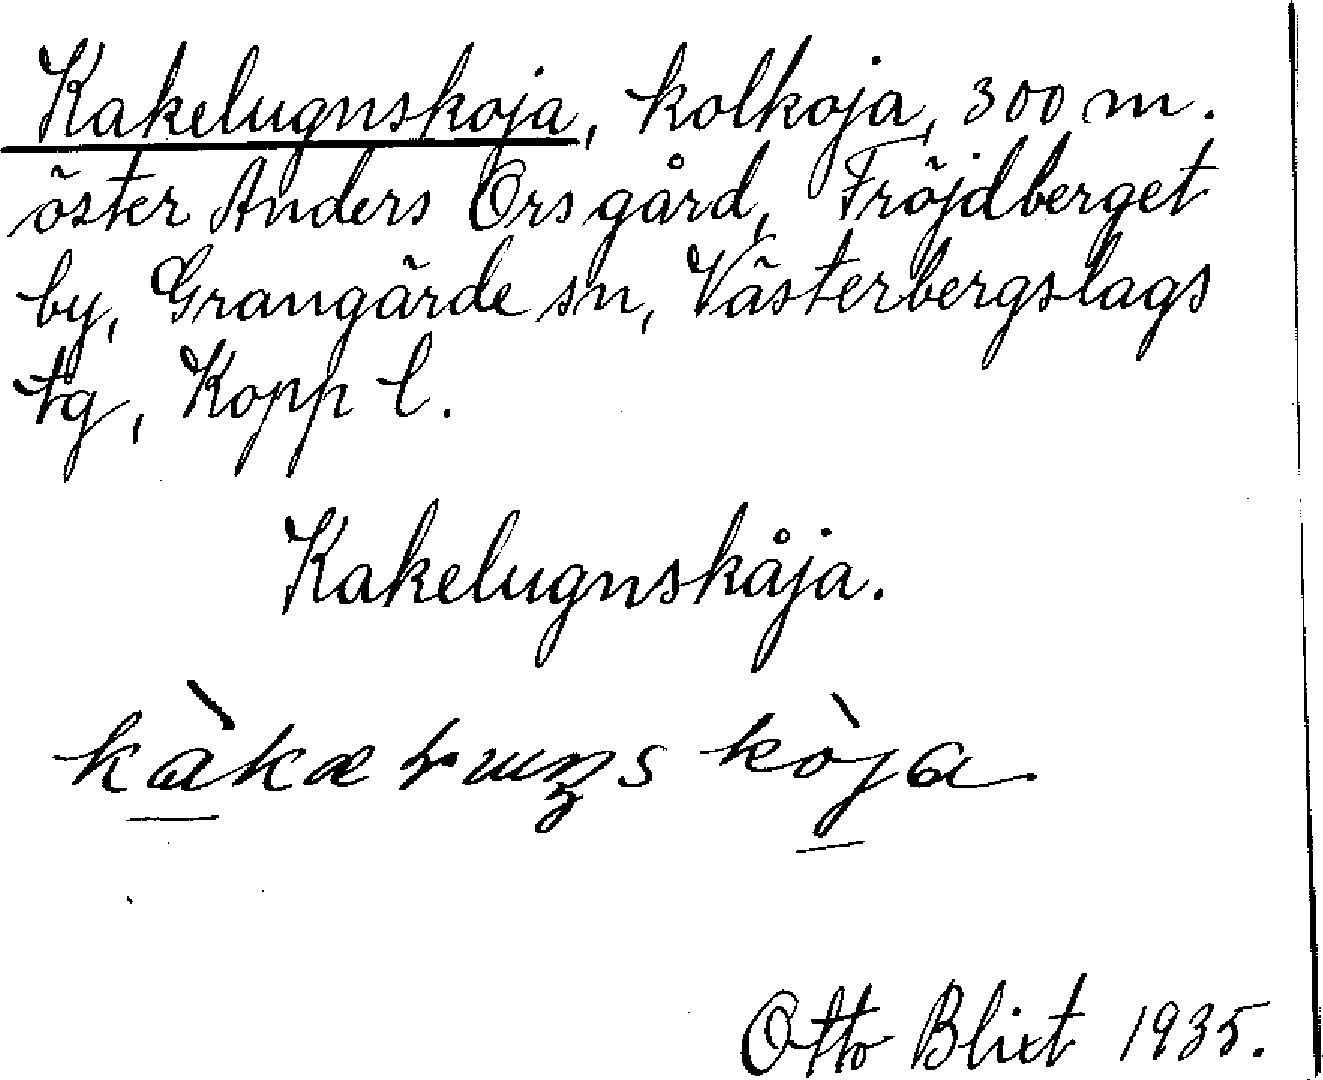 Kakelugnskoja, kolkoja, 300 m.
öster Anders Ors gård, Fröjdberget
by, Grangärde sn, Västerbergslags
tg, Kopp l.
Kakelugnskåja.
Otto Blixt 1935.